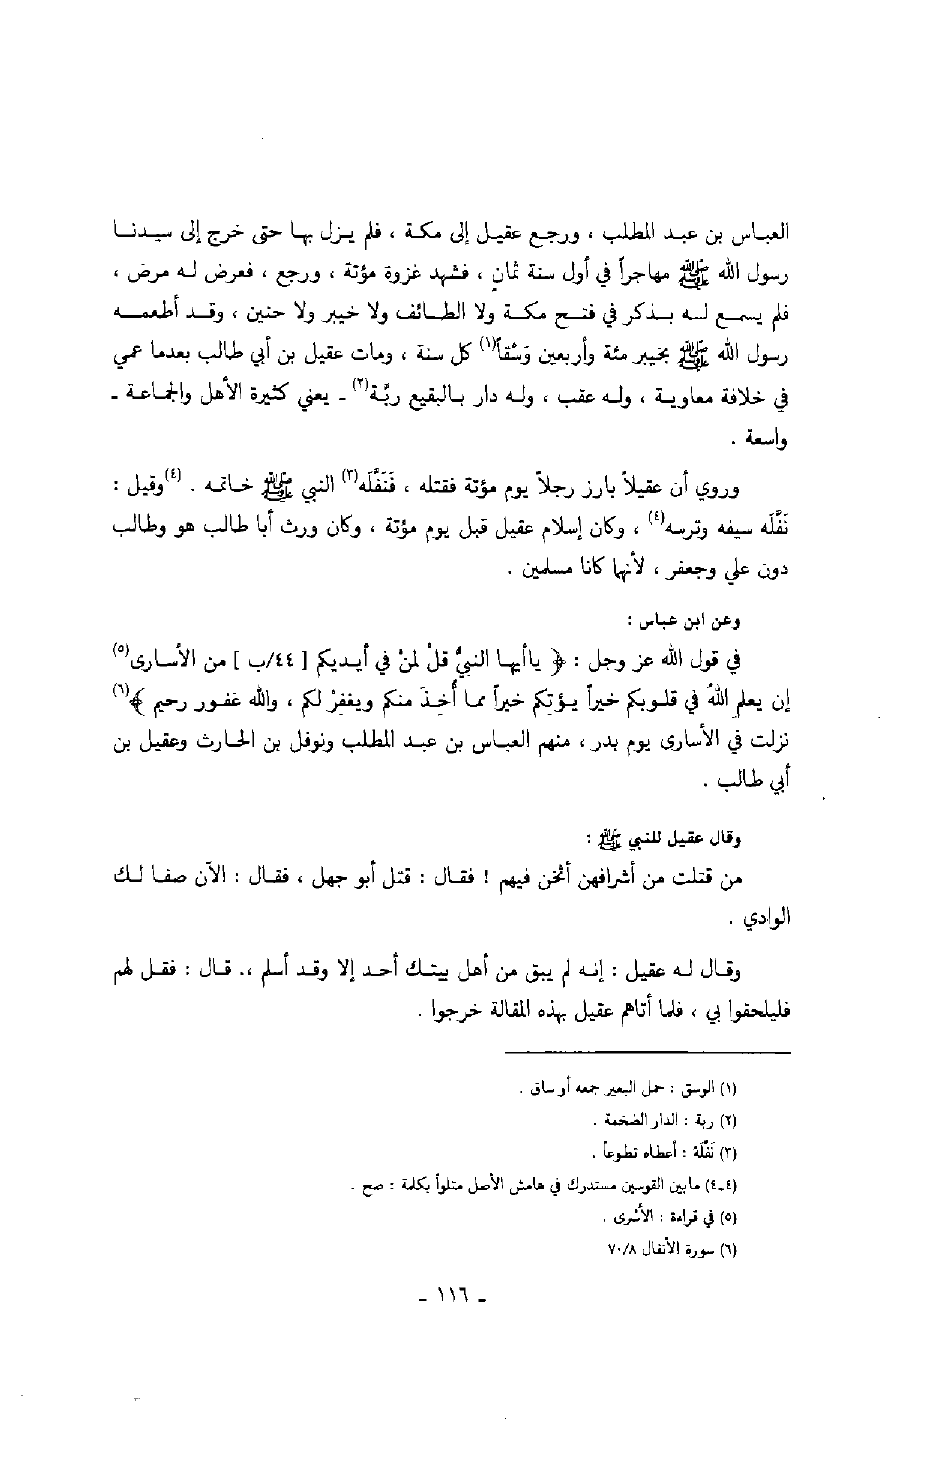 العباس بن عبد المطلب ، ورجع عقيل إلى مكة ، فلم يزل بها حتى خرج إلى سيدنا
رسول الله ﷺ مهاجراً في أول سنة ثمانٍ ، فشهد غزوة مؤتة ، ورجع ، فعرض له مرض ،
فلم يسمع له بذكر في فتح مكة ولا الطائف ولا خيبر ولا حنين ، وقد أطعمه
رسول الله ﷺ بخيبر مئة وأربعين وَسْقاً(١) كل سنة ، ومات عقيل بن أبي طالب بعدما عمي
في خلافة معاوية ، وله عقب ، وله دار بالبقيع ربَّة(٢) ـ يعني كثيرة الأهل والجماعة ـ
واسعة .
وروي أن عقيلاً بارز رجلاً يوم مؤتة فقتله ، فَنَفَّله(٣) النبي ﷺ خاتمه . (٤)وقيل :
نَفَّلَه سيفه وترسه(٤) ، وكان إسلام عقيل قبل يوم مؤتة ، وكان ورث أبا طالب هو وطالب
دون علي وجعفر ، لأنهما كانا مسلمين .
وعن ابن عباس :
في قول الله عز وجل : ﴿ ياأيها النبيُّ قلْ لمنْ في أيديكم [ ٤٤/ب ] من الأسارى(٥)
إن يعلم اللهُ في قلوبكم خيراً يؤتكم خيراً مما أُخِذَ منكم ويغفرْ لكم ، والله غفور رحيم ﴾(٦)
نزلت في الأسارى يوم بدر ، منهم العباس بن عبد المطلب ونوفل بن الحارث وعقيل بن
أبي طالب .
وقال عقيل للنبي ﷺ :
من قتلت من أشرافهن أثخن فيهم ! فقال : قتل أبو جهل ، فقال : الآن صفا لك
الوادي .
وقال له عقيل : إنه لم يبق من أهل بيتك أحد إلا وقد أسلم ،. قال : فقل لهم
فليلحقوا بي ، فلما أتاهم عقيل بهذه المقالة خرجوا .
(١) الوسق : حمل البعير جمعه أوساق .
(٢) ربة : الدار الضخمة .
(٣) نَفَّلَهُ : أعطاه تطوعاً .
(٤ـ٤) مابين القوسين مستدرك في هامش الأصل متلواً بكلمة : صح .
(٥) في قراءة : الأَسْرى .
(٦) سورة الأنفال ٧٠/٨
ـ ١١٦ ـ